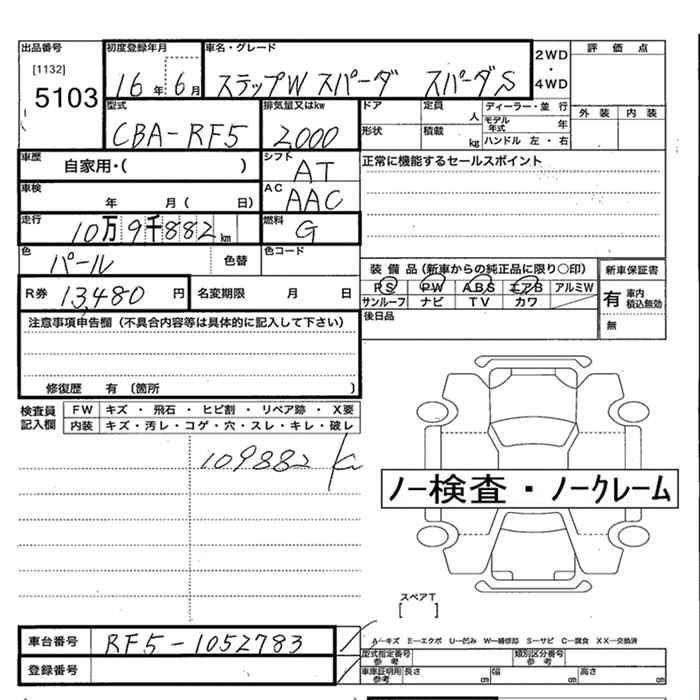 出品番号 初度登録年月 車名・グレード 2WD ・ 4WD 評価点
[1132]
5103 16年 6月 ステップW スパーダ スパーダS
型式 排気量又はkw ドア 定員 人 ディーラー・並行 外装 内装
CBA-RF5 2000 形状 積載 kg モデル年式 年
ハンドル 左・右
車歴 自家用・( ) シフト AT 正常に機能するセールスポイント
車検 年 月( 日) AC AAC
走行 10万9千882km 燃料 G
色 パール 色替 色コード
装備品(新車からの純正品に限り○印) 新車保証書
R券 13,480円 名変期限 月 日 PS PW ABS エアB アルミW 有 車内積込無効
サンルーフ ナビ TV カワ
注意事項申告欄(不具合内容等は具体的に記入して下さい) 後日品 無
修復歴 有 (箇所 )
検査員記入欄 FW キズ・飛石・ヒビ割・リペア跡・X要
内装 キズ・汚レ・コゲ・穴・スレ・キレ・破レ
109882
ノー検査・ノークレーム
スペアT
[ ]
車台番号 RF5-1052783
A―キズ E―エクボ U―凹み W―補修跡 S―サビ C―腐食 XX―交換済
型式指定番号 参考 類別区分番号 参考
登録番号 車庫証明用 参考 長さ cm 幅 cm 高さ cm